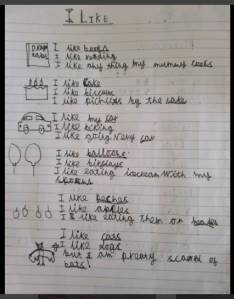 I LIKE.
I like books
I like reading
I like any thing my mummy cooks
I like cake
I like biscuits
I like picnics by the lake
I like my car
I like biking
I like going very far
I like balloons
I like birthdays
I like eating icecream with my
I like peaches
I like apples
I like eating them on beaches
I like cats
I like dogs
but I am preety scared of
bats!